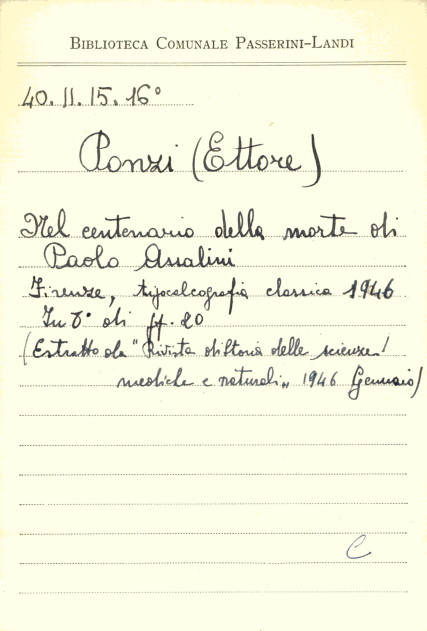 BIBLIOTECA COMUNALE PASSERINI-LANDI
40. II. 15. 16°
Ponzi (Ettore)
Nel centenario della morte di
Paolo Assalini
Firenze, tipocalcografia classica 1946
In 8° di pp. 20
(Estratto da "Rivista di Storia delle scienze
mediche e naturali„ 1946 Gennaio)
C